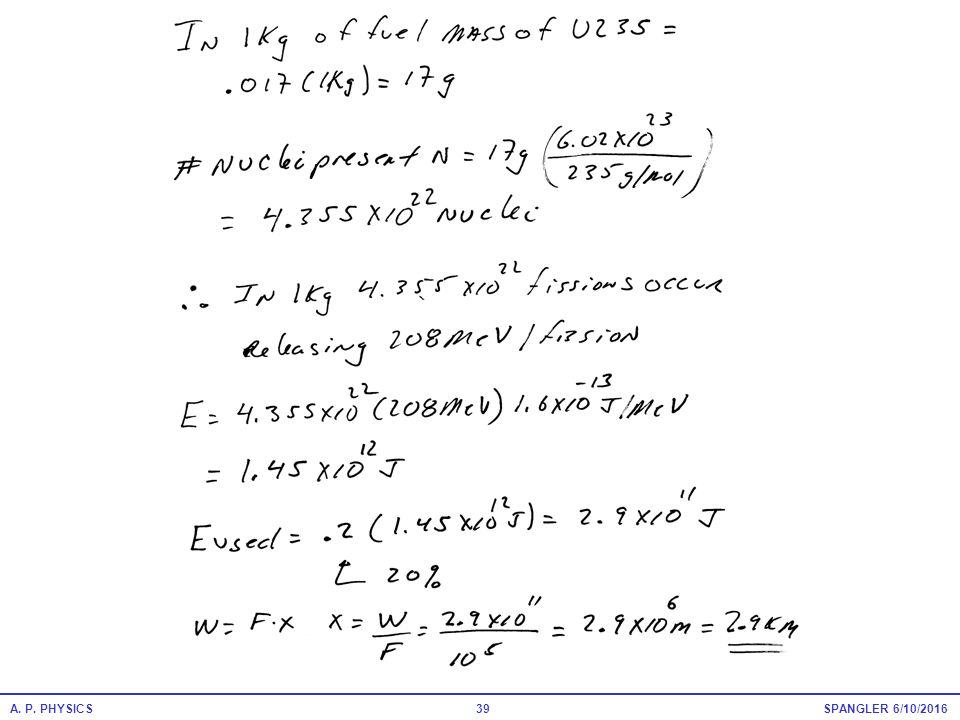 In 1Kg of fuel mass of U235 =
.017 (1Kg) = 17g
# Nuclei present N = 17g (6.02x10^23 / 235 g/mol)
= 4.355 x10^22 Nuclei
∴ In 1Kg 4.355 x10^22 fissions occur
Releasing 208 MeV / fission
E = 4.355x10^22 (208 MeV) 1.6x10^-13 J/MeV
= 1.45 x10^12 J
Eused = .2 (1.45 x10^12 J) = 2.9 x10^11 J
20%
W = F·x x = W/F = 2.9 x10^11 / 10^5 = 2.9x10^6 m = 2.9 Km
A. P. PHYSICS 39 SPANGLER 6/10/2016